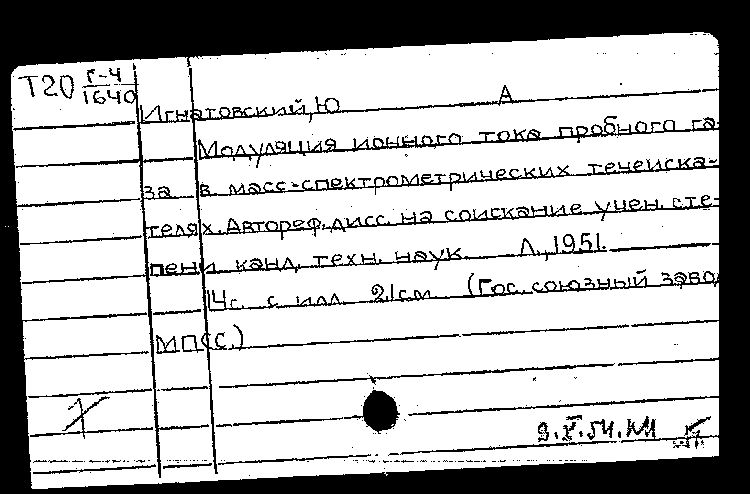 Т20 Г-4
1640
Игнатовский, Ю А
Модуляция ионного тока пробного га-
за в масс-спектрометрических течеиска-
телях. Автореф. дисс. на соискание учен. сте-
пени канд. техн. наук. Л., 1951.
14с. с илл. 21см (Гос. союзный завод
МПСС.)
2.X.54.